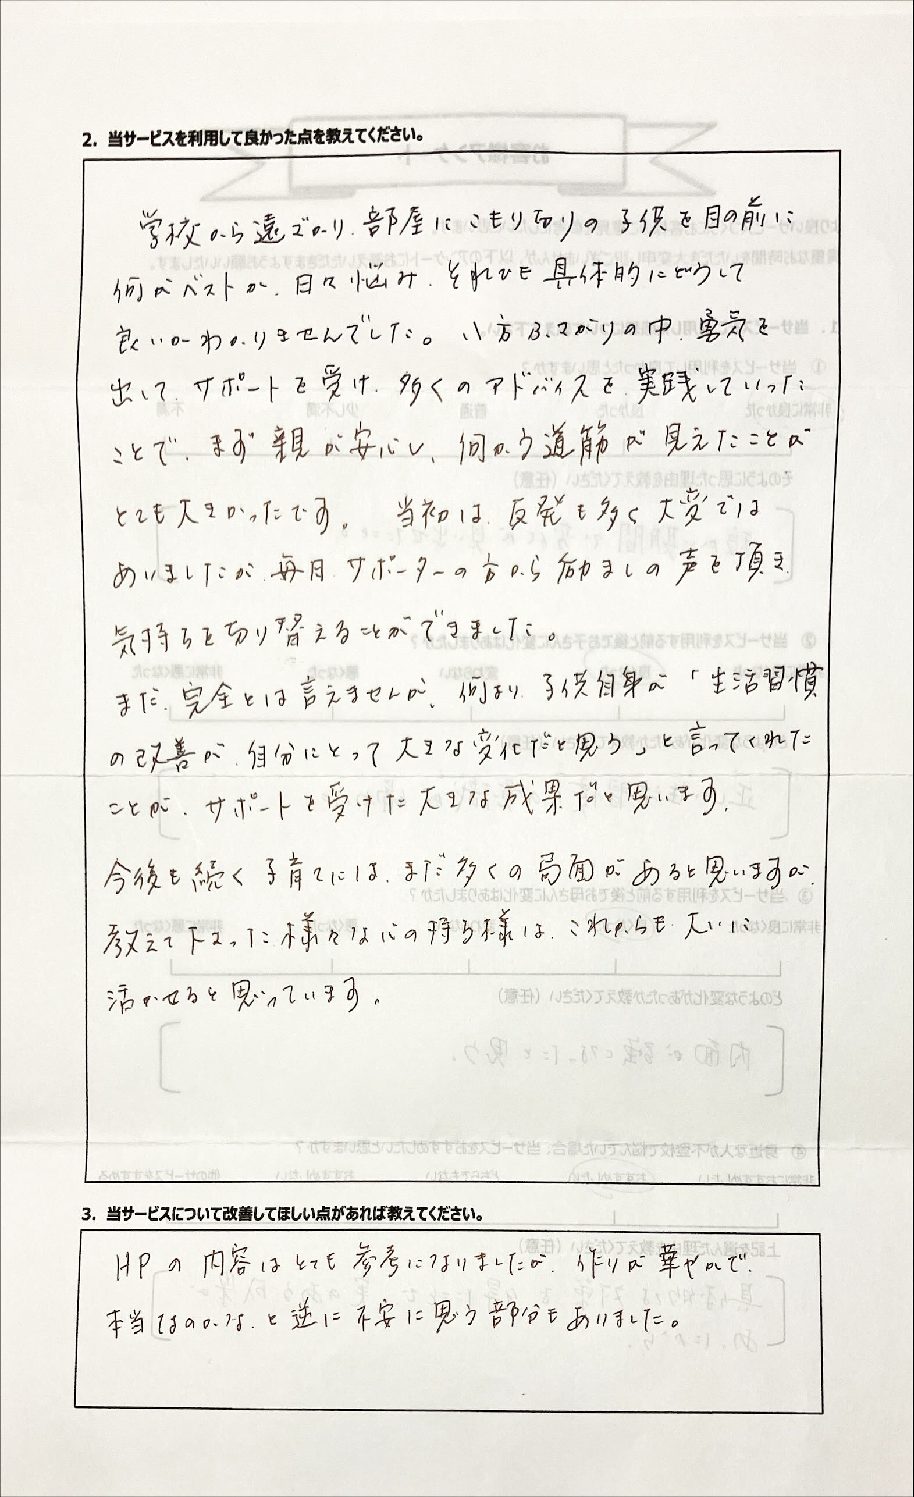 2. 当サービスを利用して良かった点を教えてください。
学校から遠ざかり、部屋にこもり切りの子供を目の前に
何がベストか、日々悩み、それでも具体的にどうして
良いかわかりませんでした。八方ふさがりの中、勇気を
出して、サポートを受け、多くのアドバイスを、実践していった
ことで、まず親が安心し、何かう道筋が見えたことが
とても大きかったです。 当初は、反発も多く大変では
ありましたが、毎日、サポーターの方から励ましの声を頂き、
気持ちを切り替えることができました。
まだ、完全とは言えませんが、何より、子供自身が「生活習慣
の改善が、自分にとって大きな変化だと思う」と言ってくれた
ことが、サポートを受けた大きな成果だと思います。
今後も続く子育てには、まだ多くの局面があると思いますが、
教えて下さった様々な心の持ち様は、これからも大いに
活かせると思っています。
3. 当サービスについて改善してほしい点があれば教えてください。
HPの内容はとても参考になりましたが、作りが華やかで、
本当なのかな、と逆に不安に思う部分もありました。